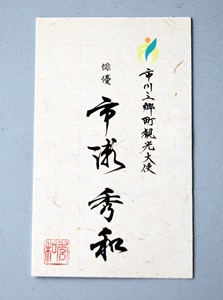 市川三郷町観光大使
俳優
市瀬秀和